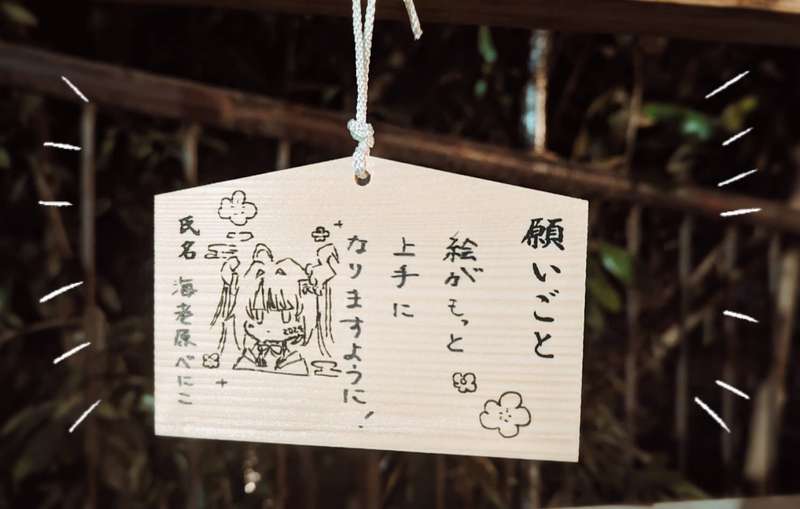 願いごと
絵がもっと
上手に
なりますように!
2024
氏名 海老原べにこ